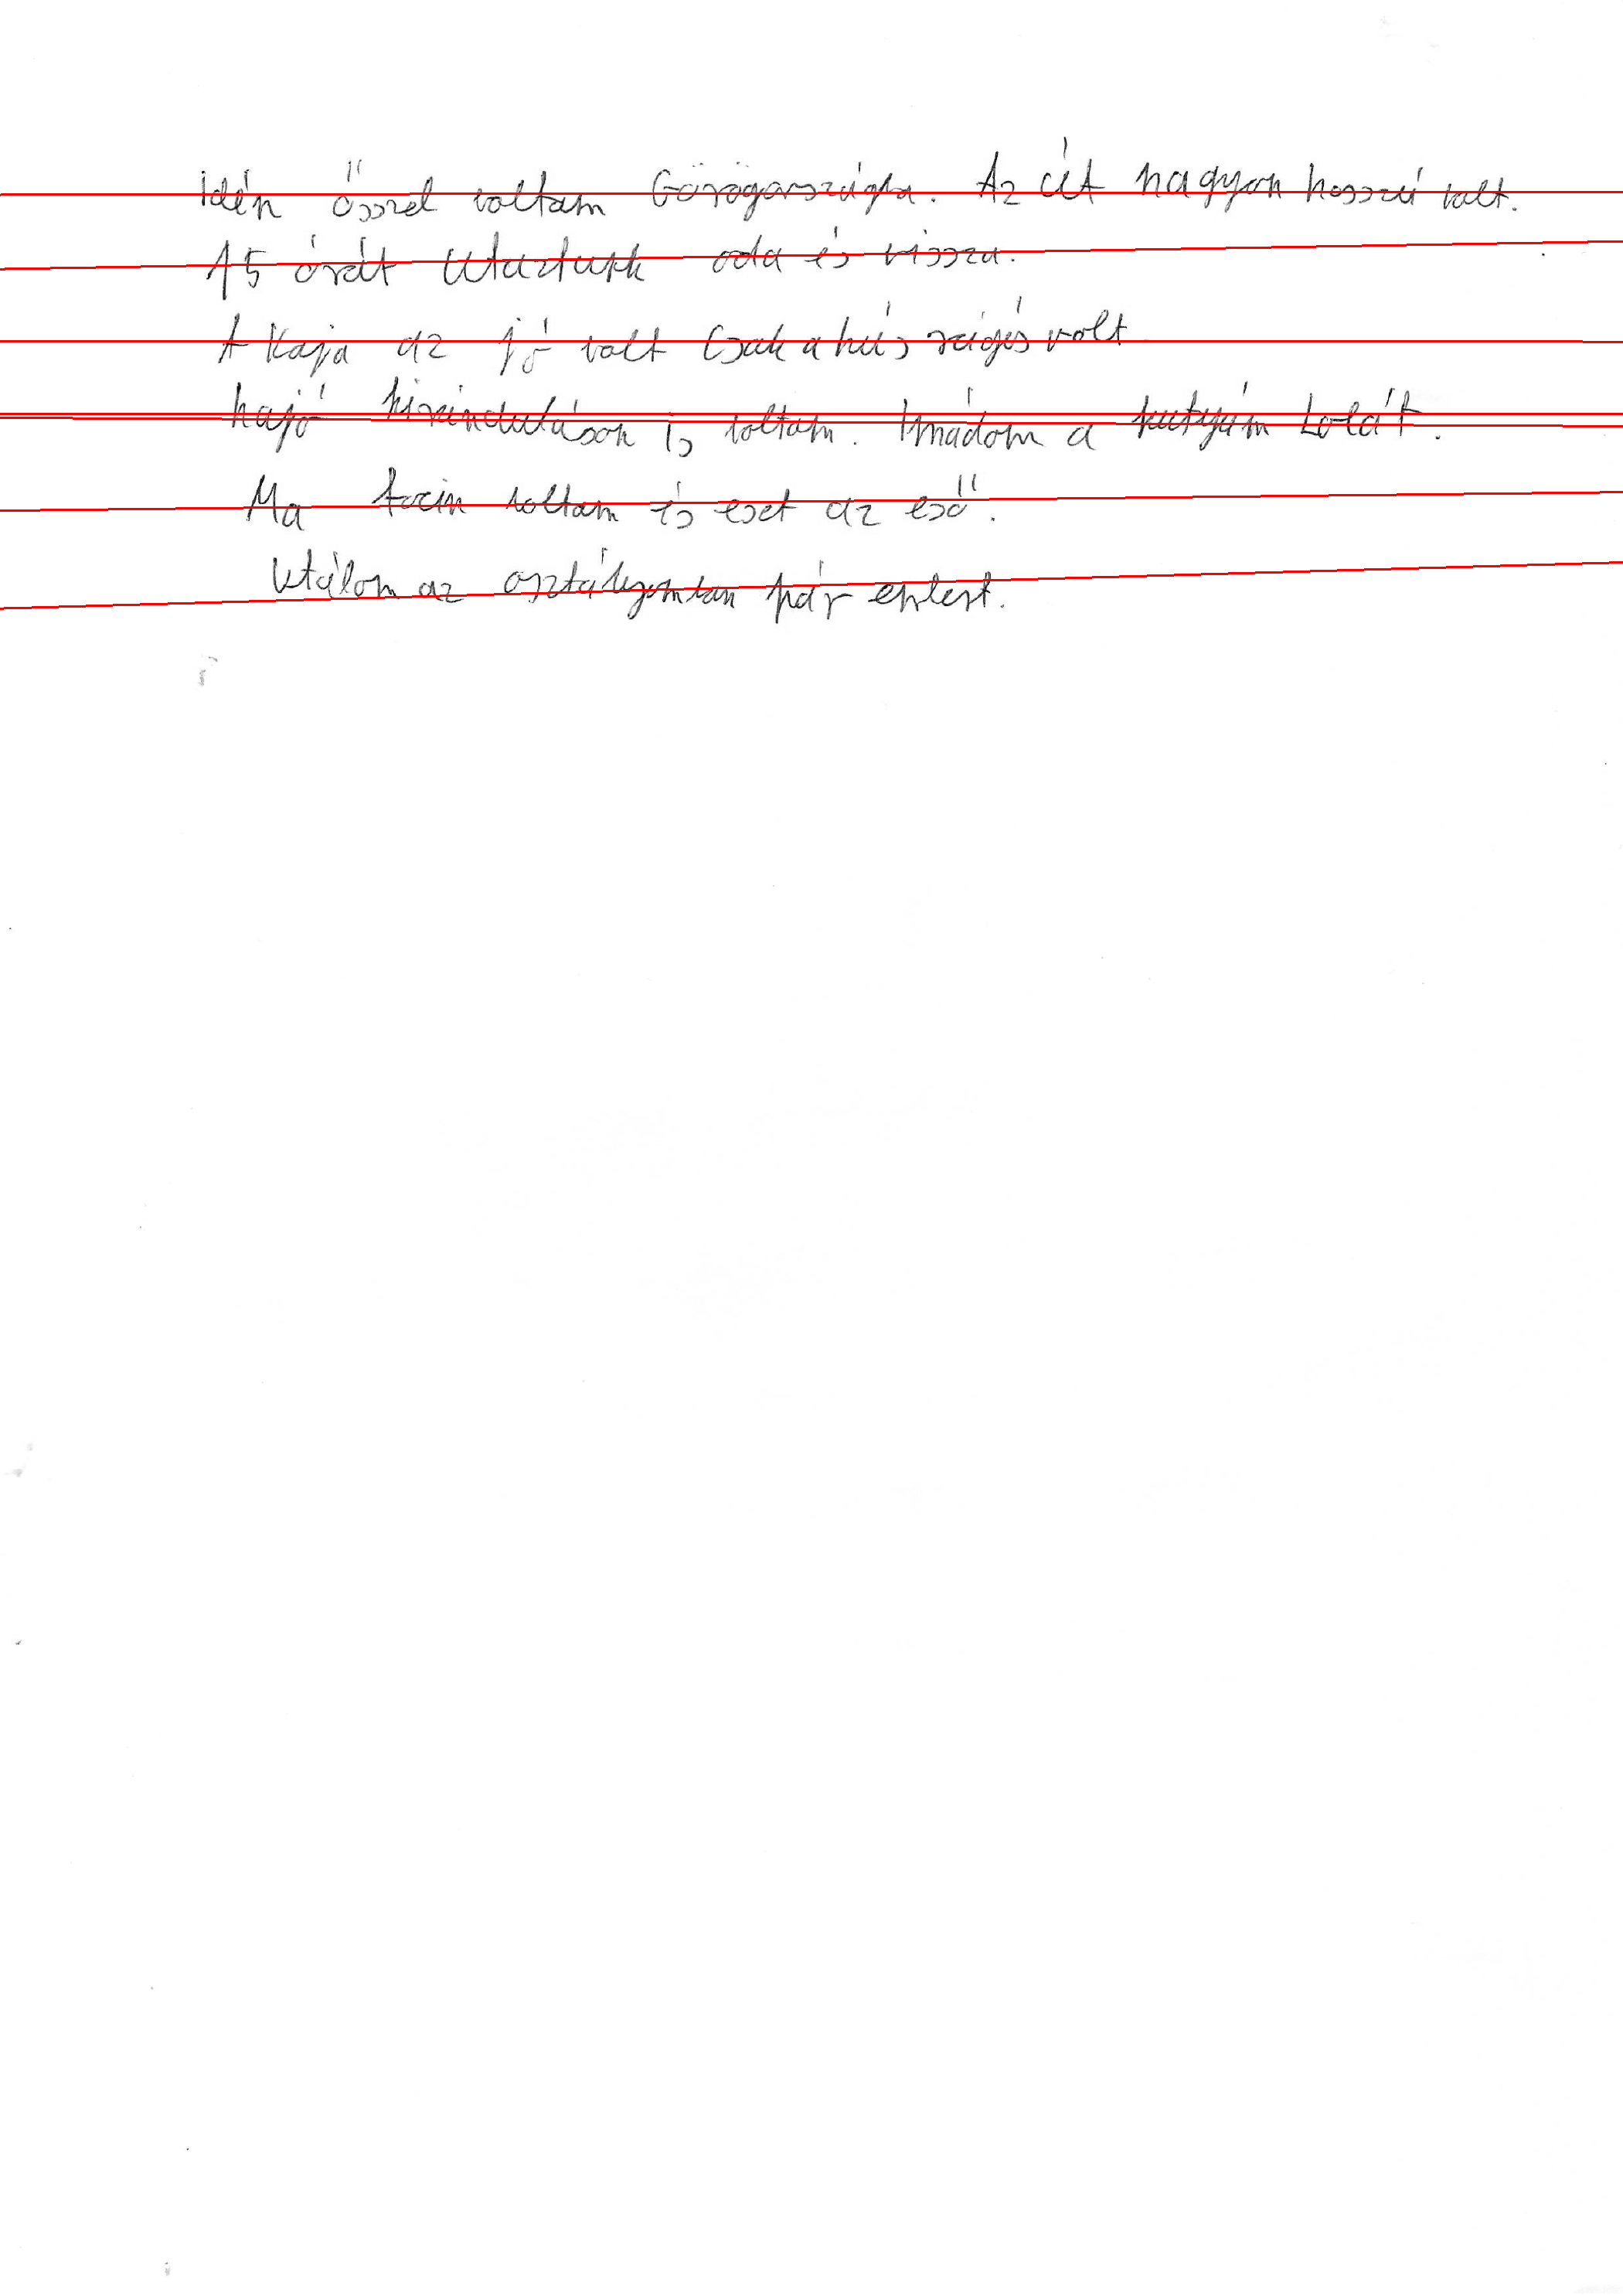 idén ősszel voltam Görögországba. Az út nagyon hosszú volt.
15 órát utaztunk oda és vissza.
A kaja az jó volt csak a hús rágós volt
hajó kiránduláson is voltam. Imádom a kutyám Lolát.
Ma focin voltam és eset az eső.
Utálom az osztályomban pár embert.